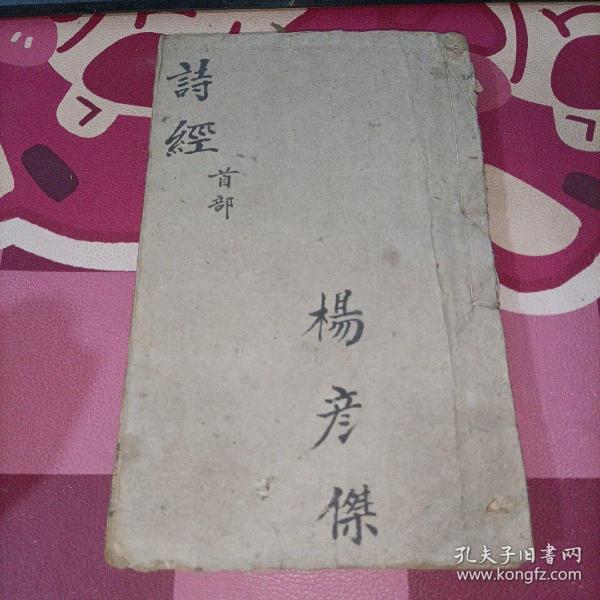 詩經
首部
楊彦傑
孔夫子旧書网
www.kongfz.com